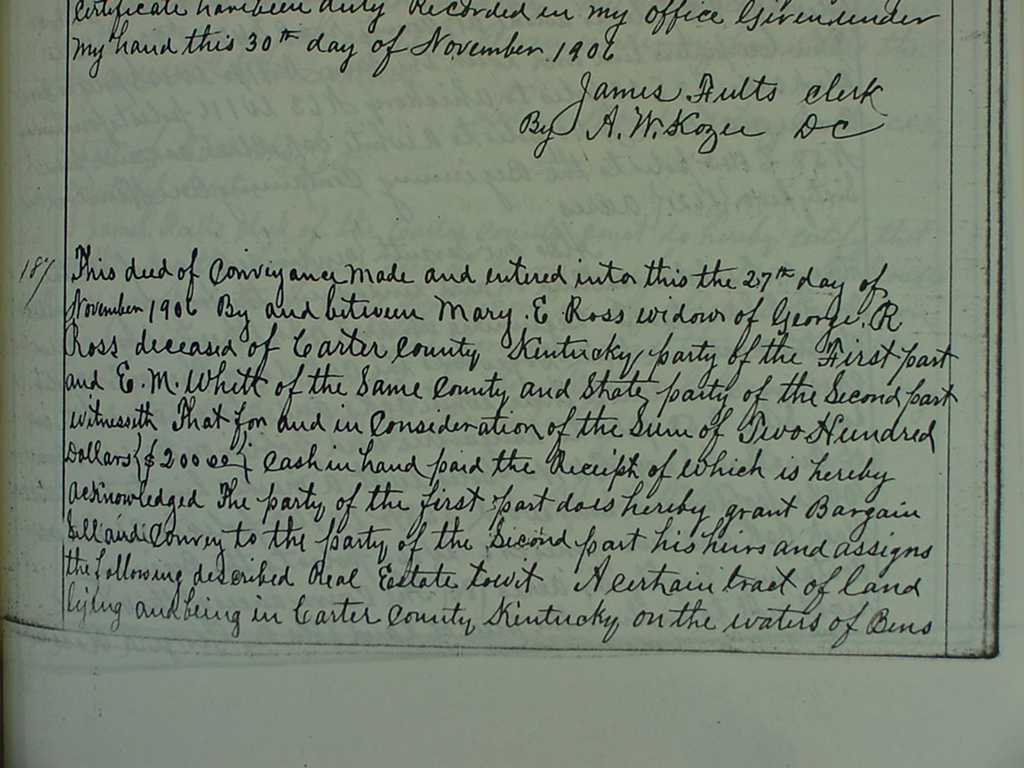 Certificate have been duly Recorded in my office Given under
my hand this 30th day of November 1906
James Fults clerk
By A. W. Kozee DC
187 This deed of Conveyance made and entered into this the 27th day of
November 1906 By and between Mary. E Ross widow of George. R
Ross deceased of Carter County Kentucky party of the First part
and E. M. Whitt of the Same County and State party of the Second part
witnesseth That for and in Consideration of the Sum of Two Hundred
Dollars {$200 00} Cash in hand paid the Receipt of which is hereby
acknowledged The party of the first part does hereby grant Bargain
Sell and Convey to the party of the Second part his heirs and assigns
the following described Real Estate towit A certain tract of land
lying and being in Carter County Kentucky on the waters of Bens